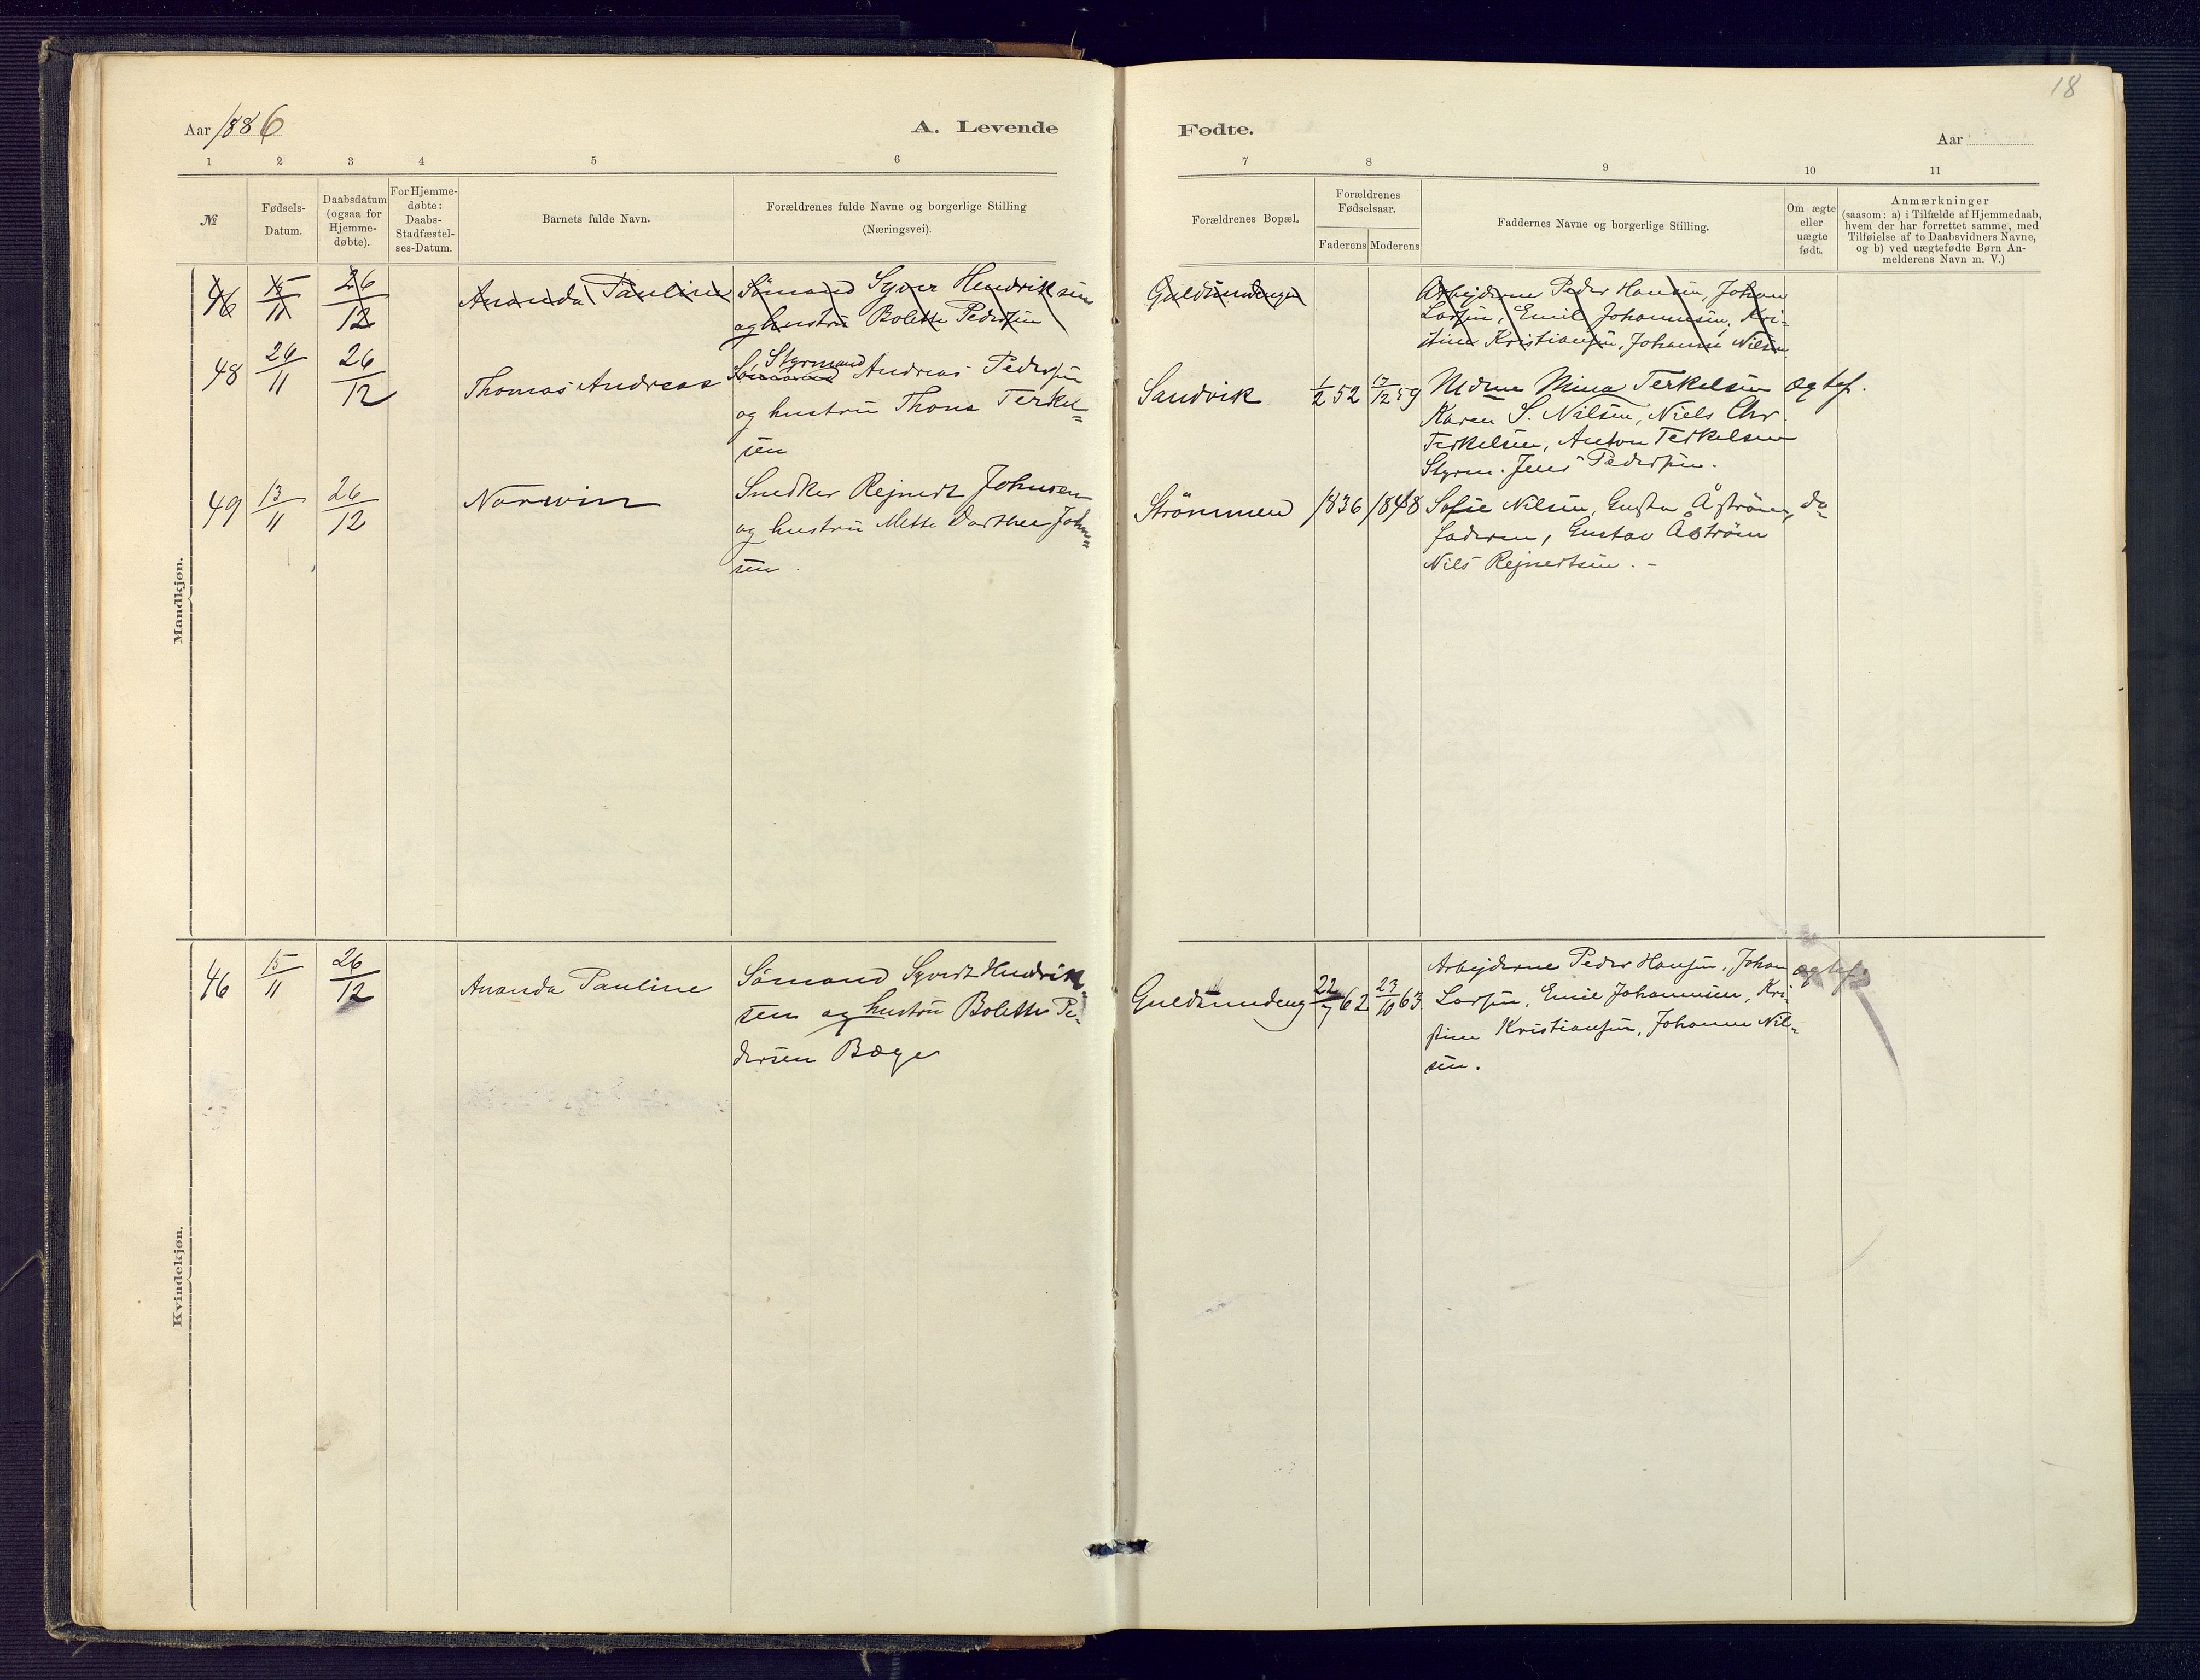 18
Aar 1886
A. Levende
Fødte.
Aar
1 2 3 4 5 6 7 8 9 10 11
№
Fødsels-
Datum.
Daabsdatum
(ogsaa for
Hjemme-
døbte).
For Hjemme-
døbte:
Daabs-
Stadfæstel-
ses-Datum.
Barnets fulde Navn.
Forældrenes fulde Navne og borgerlige Stilling
(Næringsvei).
Forældrenes Bopæl.
Forældrenes
Fødselsaar.
Faderens Moderens
Faddernes Navne og borgerlige Stilling.
Om ægte
eller
uægte
født.
Anmærkninger
(saasom: a) i Tilfælde af Hjemmedaab,
hvem der har forrettet samme, med
Tilføielse af to Daabsvidners Navne,
og b) ved uægtefødte Børn An-
melderens Navn m. V.)
Mandkjøn.
46 15/11 26/12 Ananda Pauline Sømand Syver Hendriksen
og hustru Bolette Pedersen
Guldsmedengen
Arbejderne Peder Hansen, Johan
Larsen, Emil Johannesen, Kri-
stine Kristiansen, Johanne Nilsen
48 26/11 26/12 Thomas Andreas Styrmand
Sømand Andreas Pedersen
og hustru Thona Terkel-
sen
Sandvik 1/2 52 17/12 59
Mdme Mina Terkelsen
Karen S. Nilsen, Niels Chr.
Terkelsen, Anton Terkelsen
Styrm. Jens Pedersen.
Ægtef.
49 13/11 26/12 Norwin Snedker Rejnert Johnsen
og hustru Mette Dorthea John-
sen.
Strømmen 1836 1848
Sofie Nilsen, Gusta Åström,
faderen, Gustav Åström
Nils Rejnertsen. -
do
Kvindekjøn.
46 15/11 26/12 Ananda Pauline Sømand Syvert Hendrik-
sen og hustru Bolette Pe-
dersen Bøge
Guldsmedeng 22/7 62 23/10 63.
Arbejderne Peder Hansen, Johan
Larsen, Emil Johannesen, Kri-
stine Kristiansen, Johanne Nil-
sen.
ægtef.